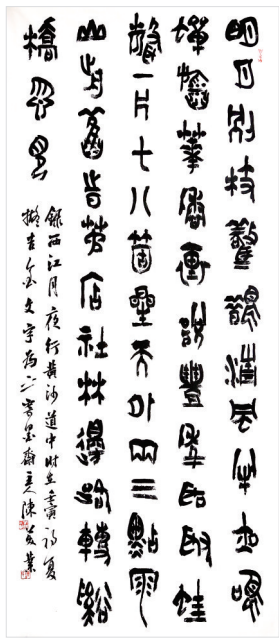 明月別枝驚鵲清風半夜鳴
蟬稻華香裏說豐年聽取蛙
聲一片七八箇星天外兩三點雨
山前舊時茅店社林邊路轉溪
橋忽見
錄西江月夜行黃沙道中時在壬寅初夏
擬古金文字為之墨齋主人陳業